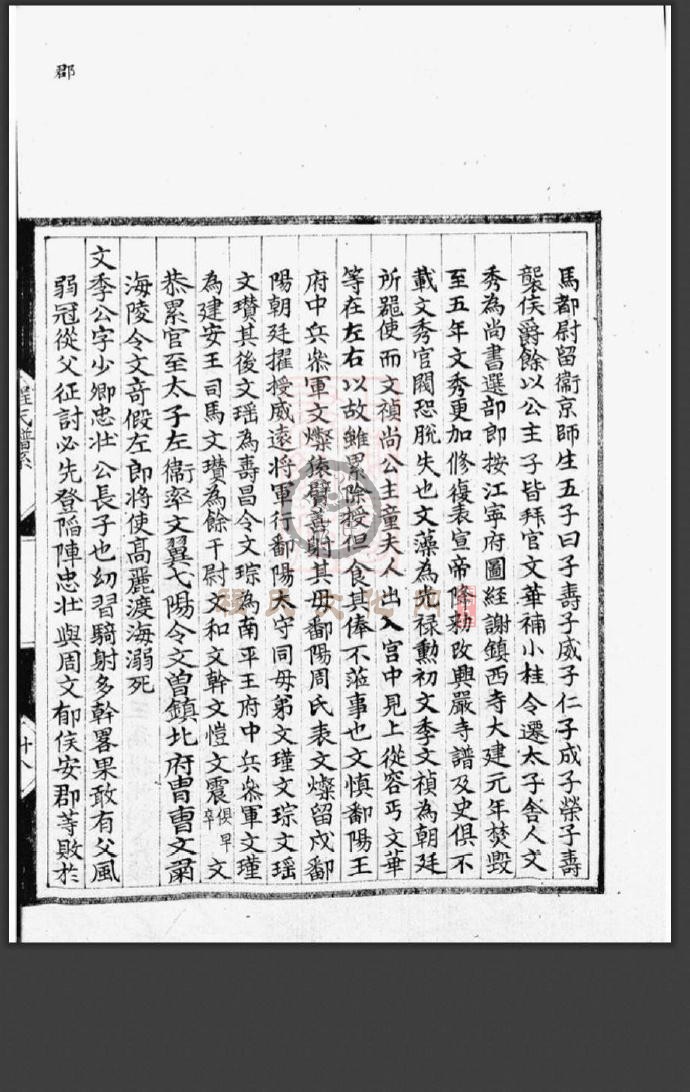 郡
馬都尉留衞京師生五子曰子壽子威子仁子成子榮子壽
襲侯爵餘以公主子皆拜官文華補小桂令遷太子舎人文
秀為尚書選部郎按江寧府圖經謝鎮西寺大建元年焚毀
至五年文秀更加修復表宣帝條勑改興嚴寺譜及史俱不
載文秀官閥恐脫失也文藻為光禄勲初文季文禎為朝廷
所器使而文禎尚公主童夫人出入宮中見上從容丐文華
等在左右以故雖累除授但食其俸不蒞事也文慎鄱陽王
府中兵叅軍文燦猿臂善射其母鄱陽周氏表文燦留戍鄱
陽朝廷擢授威遠將軍行鄱陽太守同母弟文瑾文琮文瑶
文瓚其後文瑶為壽昌令文琮為南平王府中兵叅軍文瑾
為建安王司馬文瓚為餘干尉文和文幹文愷文震俱早卒文
恭累官至太子左衞率文翼弋陽令文曽鎮北府曹文
海陵令文竒假左郎將使髙麗渡海溺死
文季公字少卿忠壯公長子也幼習騎射多幹畧果敢有父風
弱冠從父征討必先登陷陣忠壯與周文郁侯安郡等敗於
程氏譜系
十八
移民文化网